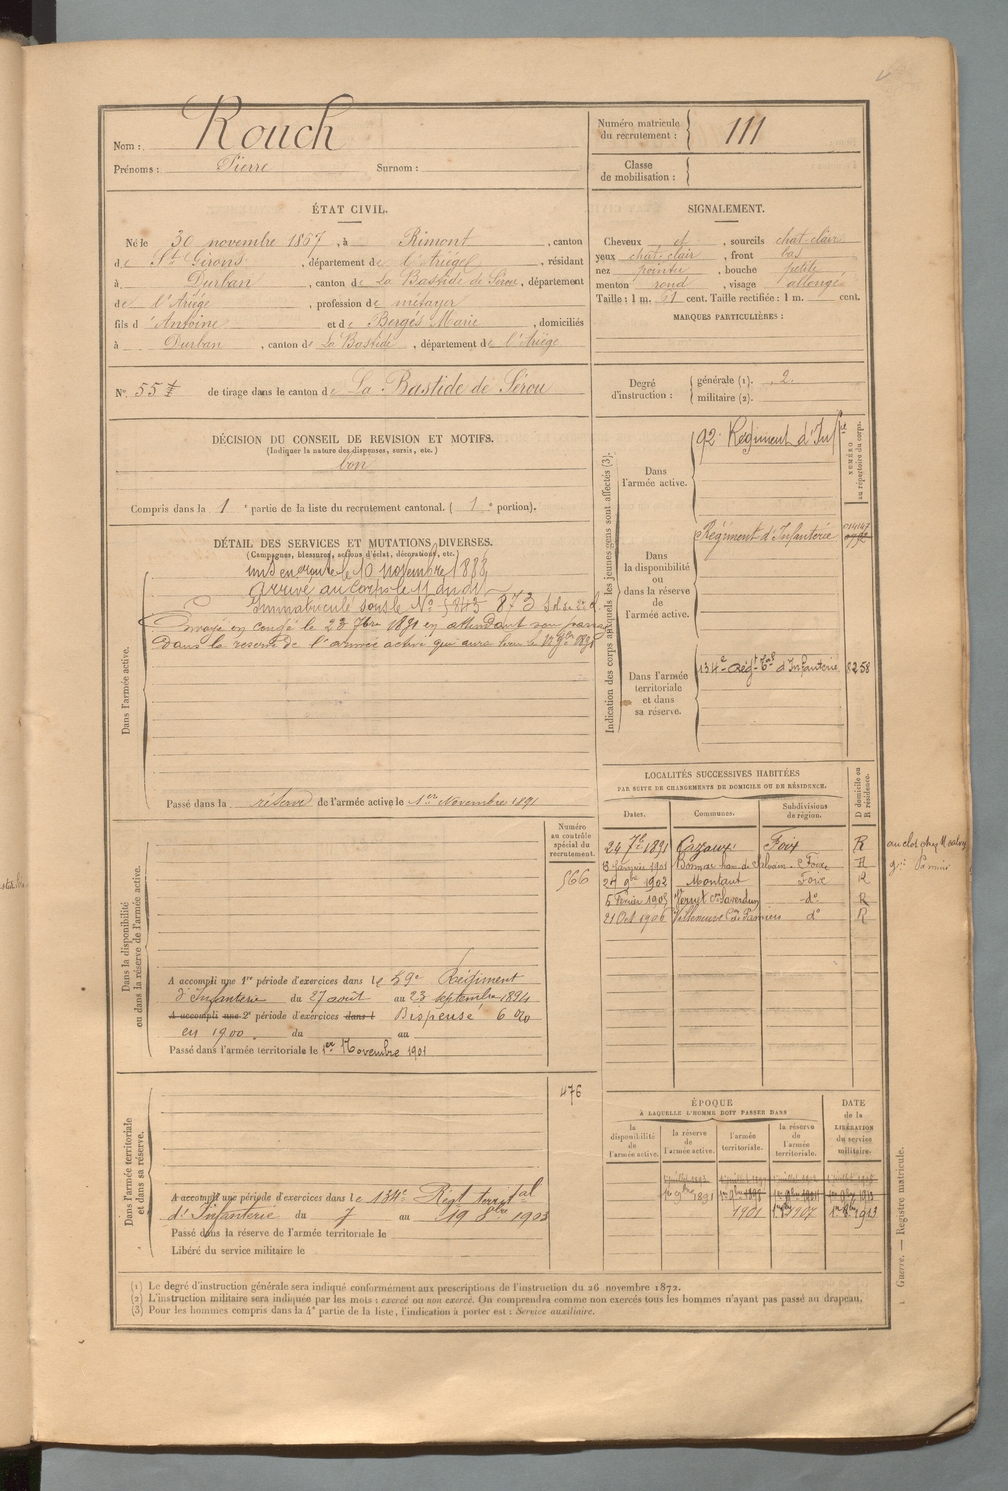 Nom : Rouch
Prénoms : Pierre Surnom :
Numéro matricule du recrutement : 111
Classe de mobilisation :
ÉTAT CIVIL.
Né le 30 novembre 1867, à Rimont, canton
de St Girons, département de l'Ariège, résidant
à Durban, canton de La Bastide de Sérou, département
de l'Ariège, profession de métayer
fils d'Antoine et de Bergès Marie, domiciliés
à Durban, canton de La Bastide, département de l'Ariège
SIGNALEMENT.
Cheveux et, sourcils chat-clair
yeux chat-clair, front bas
nez pointu, bouche petite
menton rond, visage allongé
Taille : 1 m. 61 cent. Taille rectifiée : 1 m. cent.
MARQUES PARTICULIÈRES :
N° 55 de tirage dans le canton de La Bastide de Sérou
Degré d'instruction : générale (1). 2
militaire (2).
DÉCISION DU CONSEIL DE REVISION ET MOTIFS.
(Indiquer la nature des dispenses, sursis, etc.)
bon
Compris dans la 1e partie de la liste du recrutement cantonal. (1e portion).
DÉTAIL DES SERVICES ET MUTATIONS DIVERSES.
(Campagnes, blessures, actions d'éclat, décorations, etc.)
Dans l'armée active.
mis en route le 10 novembre 1888
Arrivé au corps le 11 dudit
Immatriculé sous le N° 5843 873 Sol. de 2e cl.
Envoyé en congé le 23 7bre 1891 en attendant son passage
dans la réserve de l'armée active qui aura lieu le 1er 9bre 1891
Passé dans la réserve de l'armée active le 1er Novembre 1891
Indication des corps auxquels les jeunes gens sont affectés (3).
NUMÉRO au répertoire du corps.
Dans l'armée active.
92e Régiment d'Infie
Dans la disponibilité ou dans la réserve de l'armée active.
Régiment d'Infanterie
Dans l'armée territoriale et dans sa réserve.
134e Régt Tal d'Infanterie 8258
LOCALITÉS SUCCESSIVES HABITÉES
PAR SUITE DE CHANGEMENTS DE DOMICILE OU DE RÉSIDENCE.
Dates. Communes. Subdivisions de région. D domicile ou R résidence.
24 7bre 1891 Cazaux Foix R
13 Janvier 1901 Foix R
24 9bre 1902 Montaut Foix R
5 Février 1903 Vernet con Saverdun do R
21 Oct 1906 Villeneuve Con de Pamiers do R
Dans la disponibilité ou dans la réserve de l'armée active.
Numéro au contrôle spécial du recrutement.
566
A accompli une 1re période d'exercices dans le 59e Régiment
d'Infanterie du 27 août au 23 septembre 1894
A accompli une 2e période d'exercices dans l Dispensé 6 %
en 1900 du au
Passé dans l'armée territoriale le 1er Novembre 1901
Dans l'armée territoriale et dans sa réserve.
476
A accompli une période d'exercices dans le 134e Régt territal
d'Infanterie du 7 au 19 8bre 1903
Passé dans la réserve de l'armée territoriale le
Libéré du service militaire le
ÉPOQUE
À LAQUELLE L'HOMME DOIT PASSER DANS
la disponibilité de l'armée active. la réserve de l'armée active. l'armée territoriale. la réserve de l'armée territoriale. DATE de la LIBÉRATION du service militaire.
1er 9bre 1891
1901 1907 1913
Guerre. — Registre matricule.
(1) Le degré d'instruction générale sera indiqué conformément aux prescriptions de l'instruction du 26 novembre 1872.
(2) L'instruction militaire sera indiquée par les mots : exercé ou non exercé. On comprendra comme non exercés tous les hommes n'ayant pas passé au drapeau.
(3) Pour les hommes compris dans la 4e partie de la liste, l'indication à porter est : Service auxiliaire.